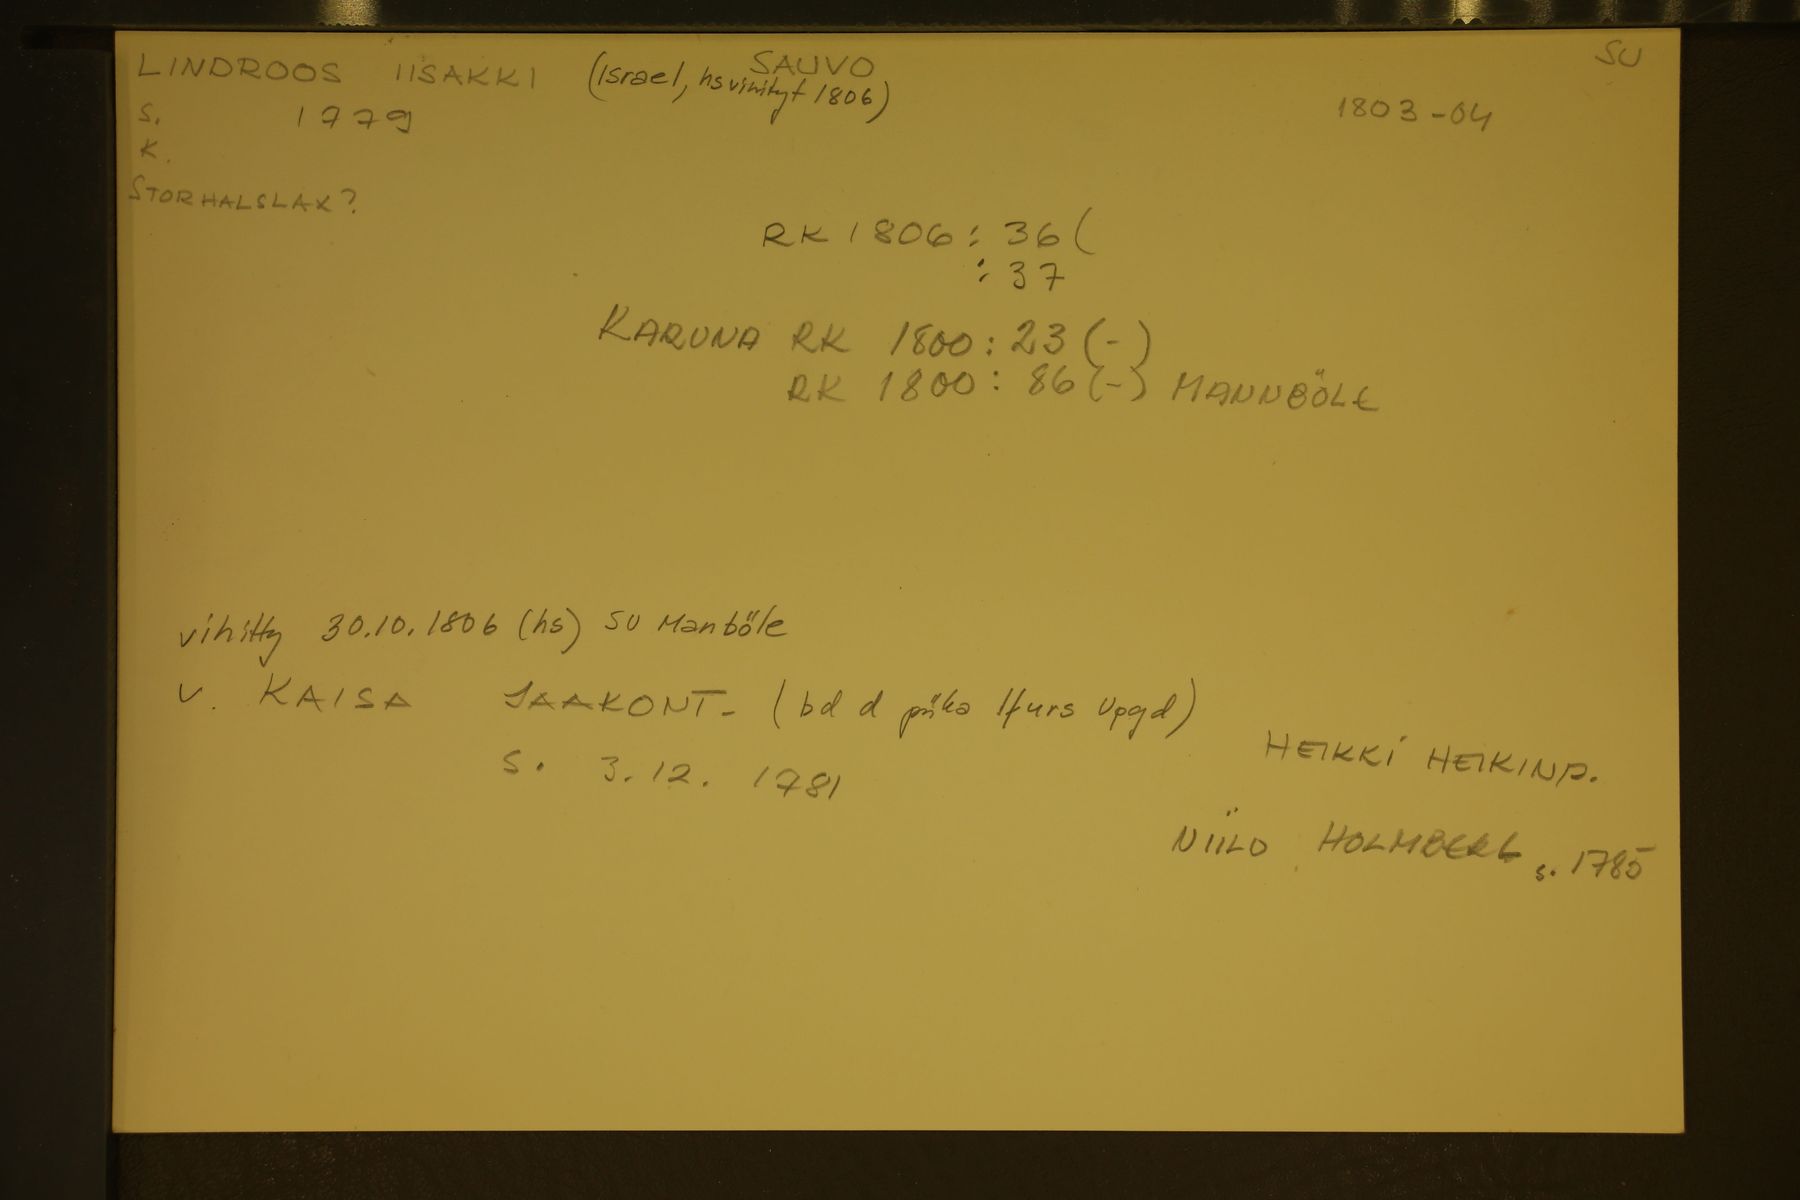 SU
LINDROOS IISAKKI (Israel, hs vihityt 1806) SAUVO
s. 1779 1803-04
K.
STORHALSLAX?
RK 1806: 36(
: 37
KARUNA RK 1800: 23 (-)
RK 1800: 86 (-) MANNBÖLE
vihitty 30.10.1806 (hs) SU Manböle
v. KAISA JAAKONT- (bd d piika Upgd)
s. 3.12. 1781
HEIKKI HEIKINP.
NIILO HOLMBERG s. 1785